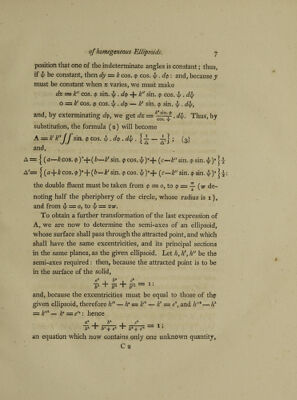 of homogeneous Ellipsoids. 7
position that one of the indeterminate angles is constant; thus,
if ψ be constant, then dy = k cos. φ cos. ψ . dφ: and, because y
must be constant when z varies, we must make
dz = k'' cos. φ sin. ψ . dφ + k'' sin. φ cos. ψ . dψ
0 = k' cos. φ cos. ψ . dφ — k' sin. φ sin. ψ . dψ,
and, by exterminating dφ, we get dz = k'' sin. φ / cos. ψ . dψ. Thus, by
substitution, the formula (2) will become
A = k' k'' ∫∫ sin. φ cos. ψ . dφ . dψ . { 1/Δ — 1/Δ' }; (3)
and,
Δ = { (a—k cos. φ)² + (b—k' sin. φ cos. ψ)² + (c—k'' sin. φ sin. ψ)² }½
Δ' = { (a+k cos. φ)² + (b—k' sin. φ cos. ψ)² + (c—k'' sin. φ sin. ψ)² }½:
the double fluent must be taken from φ = 0, to φ = π/2 (π de-
noting half the pheriphery of the circle, whose radius is 1),
and from ψ = 0, to ψ = 2π.
To obtain a further transformation of the last expression of
A, we are now to determine the semi-axes of an ellipsoid,
whose surface shall pass through the attracted point, and which
shall have the same excentricities, and its principal sections
in the same planes, as the given ellipsoid. Let h, h', h'' be the
semi-axes required: then, because the attracted point is to be
in the surface of the solid,
a²/h² + b²/h'² + c²/h''² = 1:
and, because the excentricities must be equal to those of the
given ellipsoid, therefore h'² — h² = k'² — k² = e², and h''² — h²
= k''² — k² = e'²: hence
a²/h² + b²/(h² + e²) + c²/(h² + e'²) = 1;
an equation which now contains only one unknown quantity,
C 2